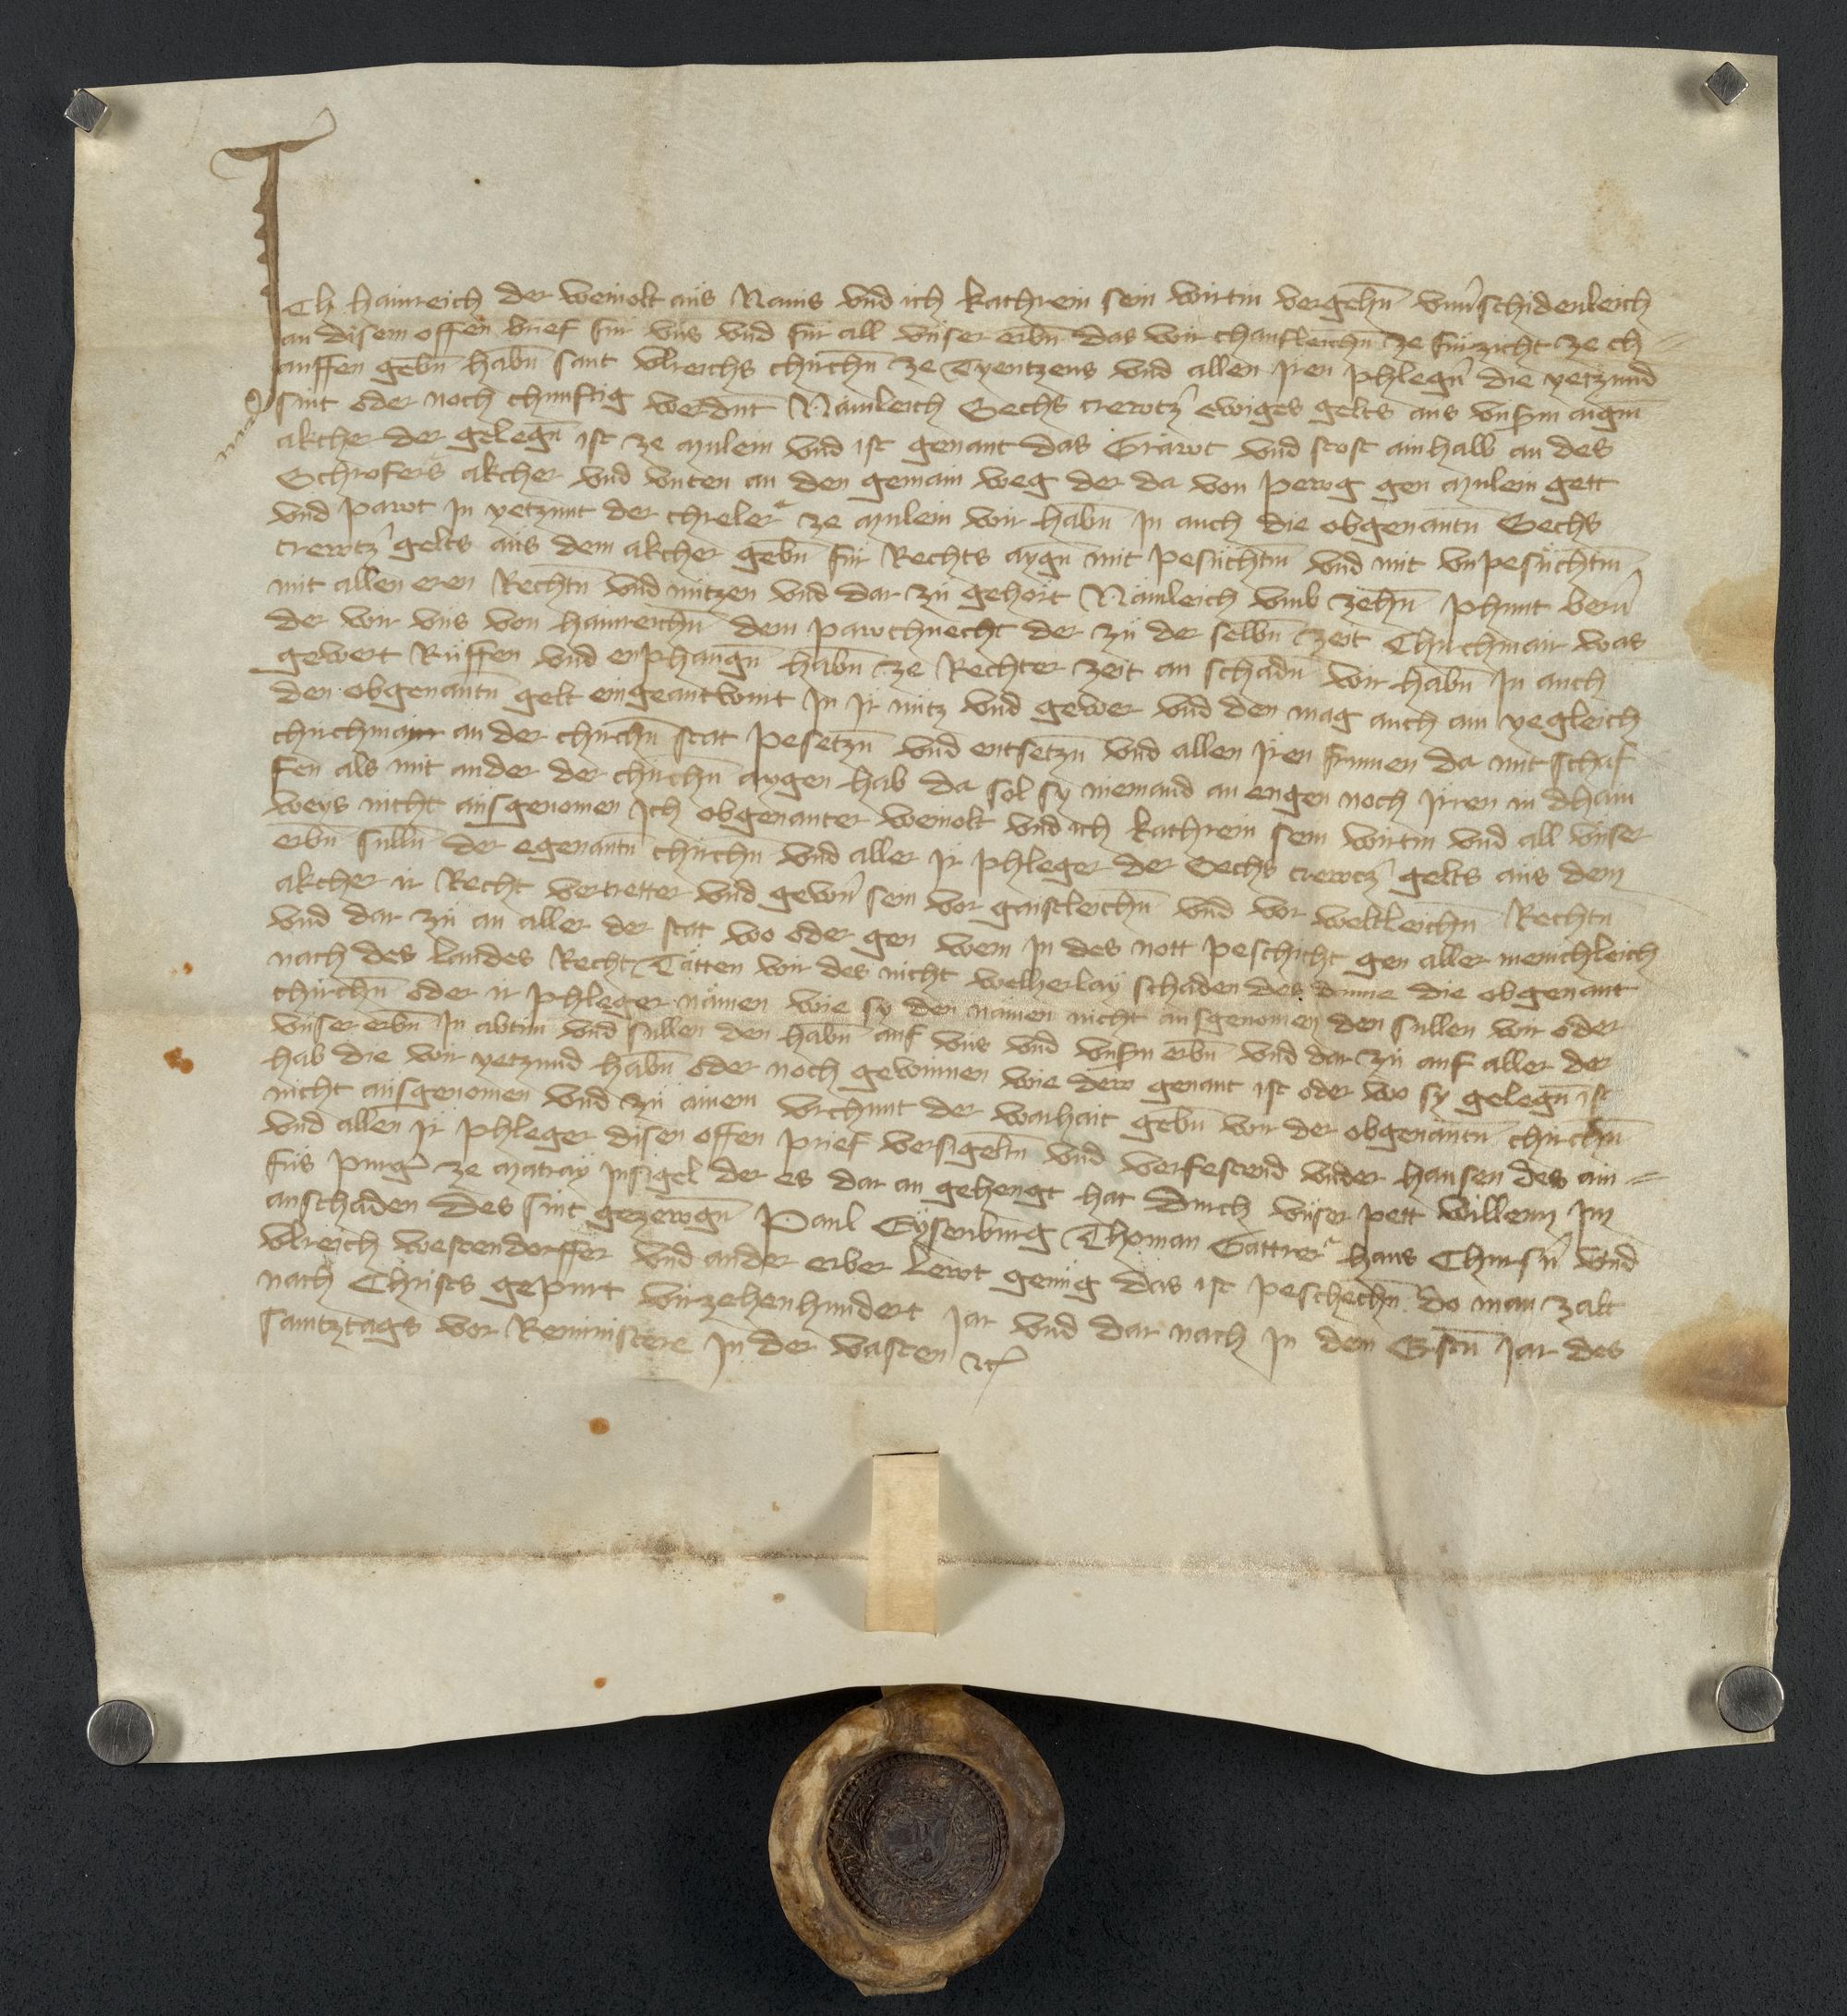 Ich hainreich der weinolt aus Nauis vnd ich kathrein sein wirtin vergehn̄ vnu̓schidenleich
an disem offen brief für vns vnd für all vnser erbn̄ das wir chaufleichn̄ ze fürzicht ze ch=
auffen gebn̄ habn̄ sant vlreichs chirchn̄ ze Tyentzens vnd allen iren phlegn̓ die yetzund
sint oder noch chunftig werdnt Nämleich Sechs crewtz̓ ewiges gelts aus vnsm̓ aigm̄
akcher der gelegn̄ ist ze mulein vnd ist genant das Gräwt vnd stost ainhalb an des
Schrofers akcher vnd vnten an den gemain weg der da von perog gen mulein gett
vnd pawt in yetzunt der chreler ze mulein wir habn̄ in auch die obgenantn̄ Sechs
crewtz̓ gelts aus dem akcher gebn̄ für Rechts aygn̄ mit pesuchtm̄ vnd mit vnpesuchtm̄
mit allen eren Rechtn̄ vnd nützen vnd dar zu gehört Nämleich vmb zehn̄ phunt bern̓
der wir vns von hainreichn̄ dem pawchnecht der zu der selbn̄ zeit Chirchmair was
gewert Rüffen vnd enphangn̄ habn̄ ze Rechter zeit an schadn̄ wir habn̄ in auch
den obgenantn̄ gelt eingeantwurt in ir nütz vnd gewer vnd den mag auch ain yegleich
chirchmayr an der chirchn̄ stat pesetzn̄ vnd entsetzn̄ vnd allen iren frumen da mit schaf
fen als mit ander der chirchn̄ aygen hab da sol sy niemand an engen noch irren in dhain
weys nicht ausgenomen Ich obgenanter weinolt vnd ich kathrein sein wirtin vnd all vnser
erbn̄ sulln̄ der egenantn̄ chirchn̄ vnd aller ir phleger der Sechs crewtz̓ gelts aus dem
akcher ir Recht vertretter vnd gewn̓ sein vor gaistleichn̄ vnd vor weltleichn̄ Rechtn
vnd dar zu an aller der stat wo oder gen wem in des nott peschicht gen aller menichleich
nach des landes Recht Tätten wir des nicht welherlay schaden des danne die obgenant
chirchn̄ oder ir phleger nämen wie sy den namen nicht ausgenomen den sullen wir oder
vnser erbn̄ in abtun vnd sullen den habn̄ auf vns vnd vnsn̓ erbn̄ vnd dar zu auf aller der
hab die wir yetzund habn̄ oder noch gewinnen wie dew genant ist oder wo sy gelegn̄ ist
nicht ausgenomen vnd zu ainem vrchunt der warhait gebn̄ wir der obgenantn̄ chirchn̄
vnd allen ir phleger disen offen prief versigeltn̄ vnd verfestend vnder hansen des ain=
füs purg̓ ze matray insigel der es dar an gehengt hat durch vnser pett willenn im
anschaden des sint gezewgn̄ Paul Eysenburg Thoman Gattrer hans Chursn̓ vnd
vlreich westendorffer vnd ander erber lewt genüg das ist peschechn̄ do man zalt
nach Christs gepurt virzehenhundert jar vnd dar nach in dem Erstn̄ jar des
samtztags vor Reminiscere in der vasten etc